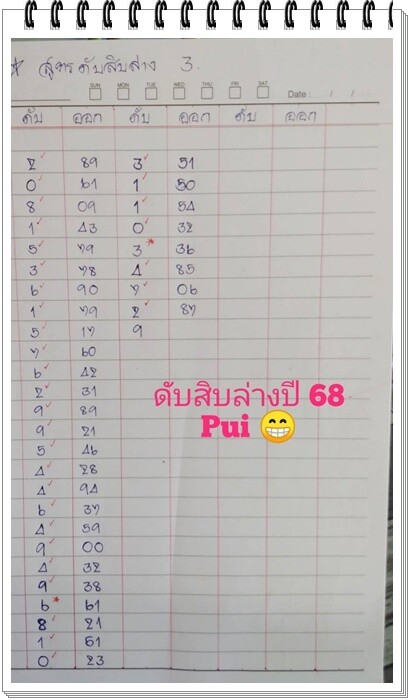 * สูตรดับสิบล่าง 3.
SUN MON TUE WED THU FRI SAT
Date : / /
ดับ ออก ดับ ออก ดับ ออก
2 89 3 51
0 61 1 50
8 09 1 54
1 43 0 32
5 79 3* 36
3 78 4 85
6 90 7 06
1 79 2 87
5 17 9
7 60
6 42
2 31
9 89
9 21
5 46
4 28
4 94
6 37
4 59
9 00
4 32
9 38
6* 61
8 21
1 51
0 23
ดับสิบล่างปี 68
Pui 😁